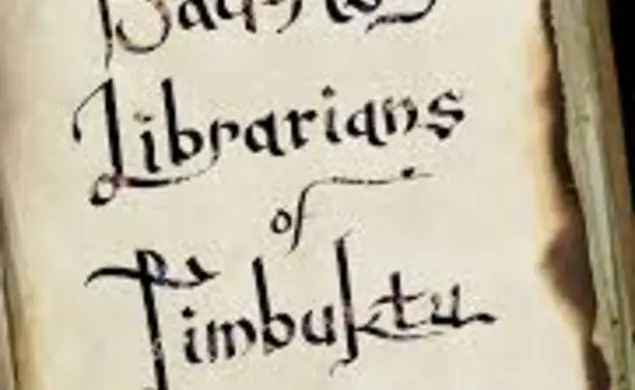 Librarians
of
Timbuktu